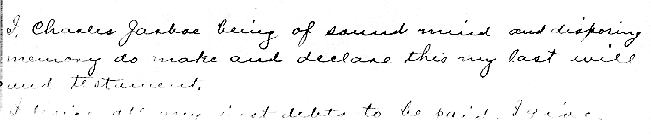 I, Charles Jarboe being of sound mind and disposing
memory do make and declare this my last will
and testament.
I desire all my just debts to be paid. I give